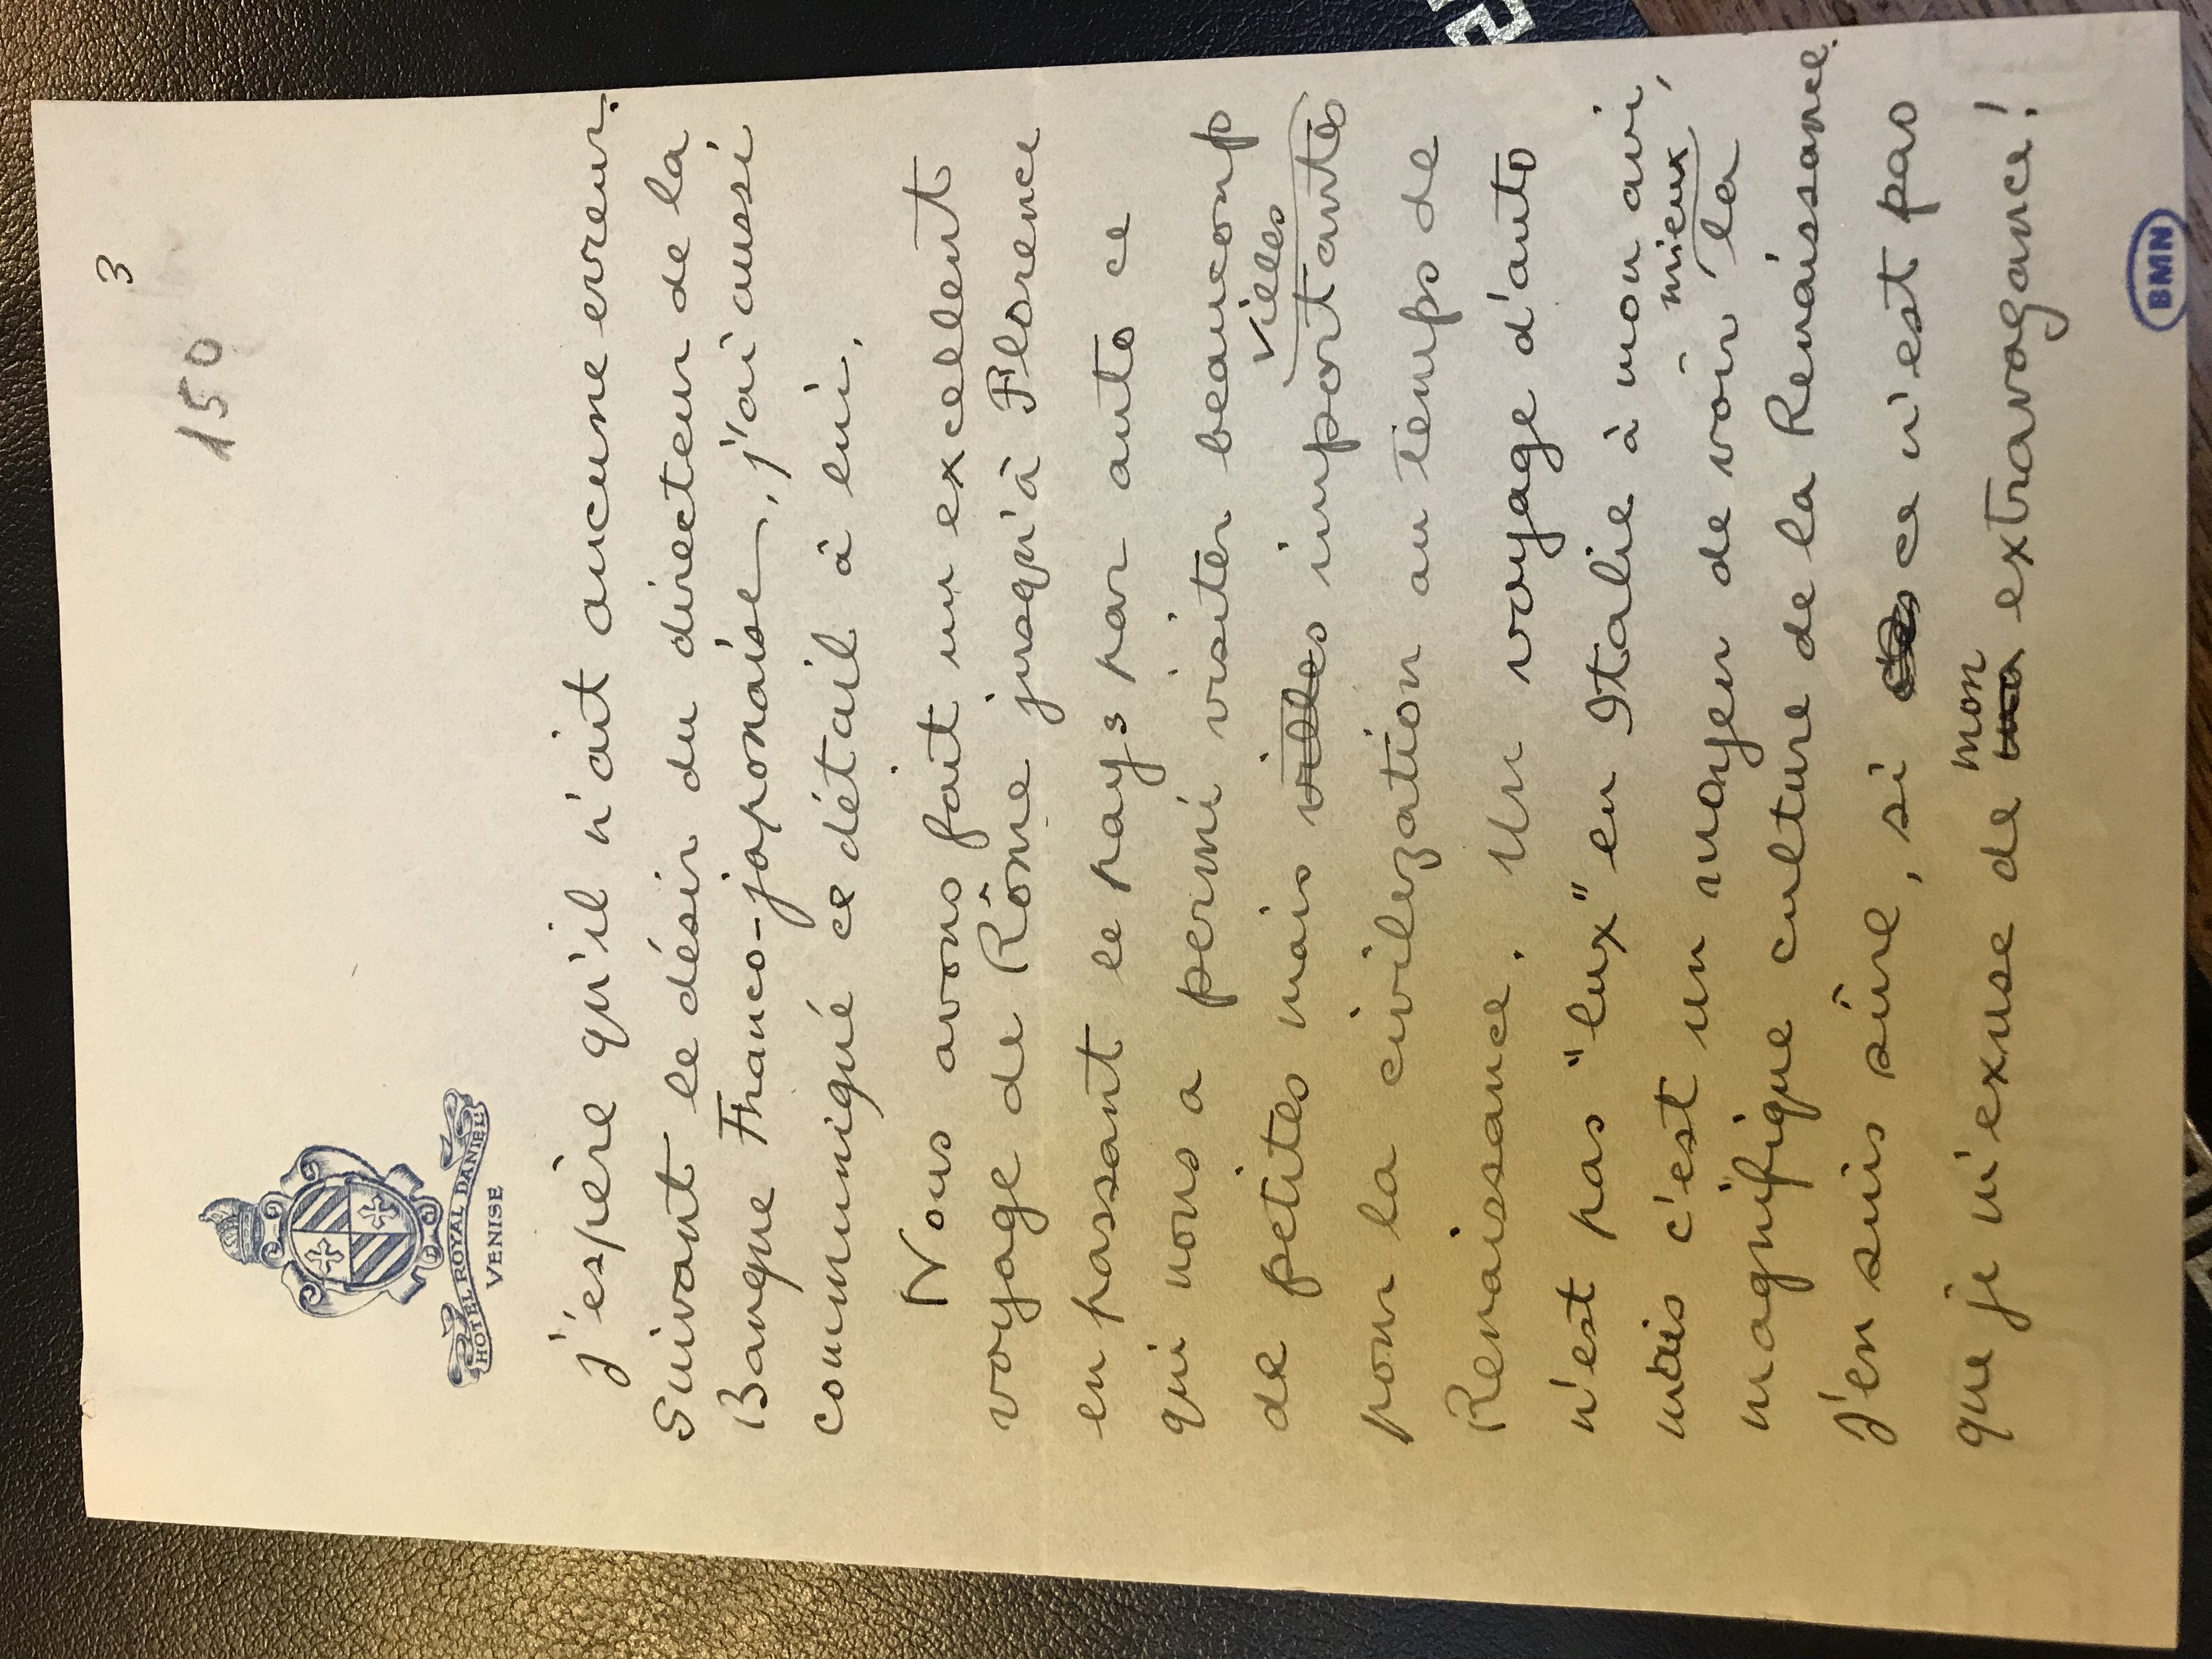 3
150
HOTEL ROYAL DANIELI
VENISE
j'éspère qu'il n'ait aucune erreur.
Suivant le désir du directeur de la
Banque Franco-japonaise, j'ai aussi
communiqué ce détail à lui.
Nous avons fait un excellent
voyage de Rôme jusqu'à Florence
en passant le pays par auto ce
qui nous a permi visiter beaucoup
villes
de petites mais villes importantes
pour la civilization au temps de
Renaissance. Un voyage d'auto
n'est pas "lux" en Italie à mon avi,
mieux
mais c'est un moyen de voir la
magnifique culture de la Renaissance.
j'en suis sûre, si ce n'est pas
mon
que je m'exuse de ma extravagance!
BMN